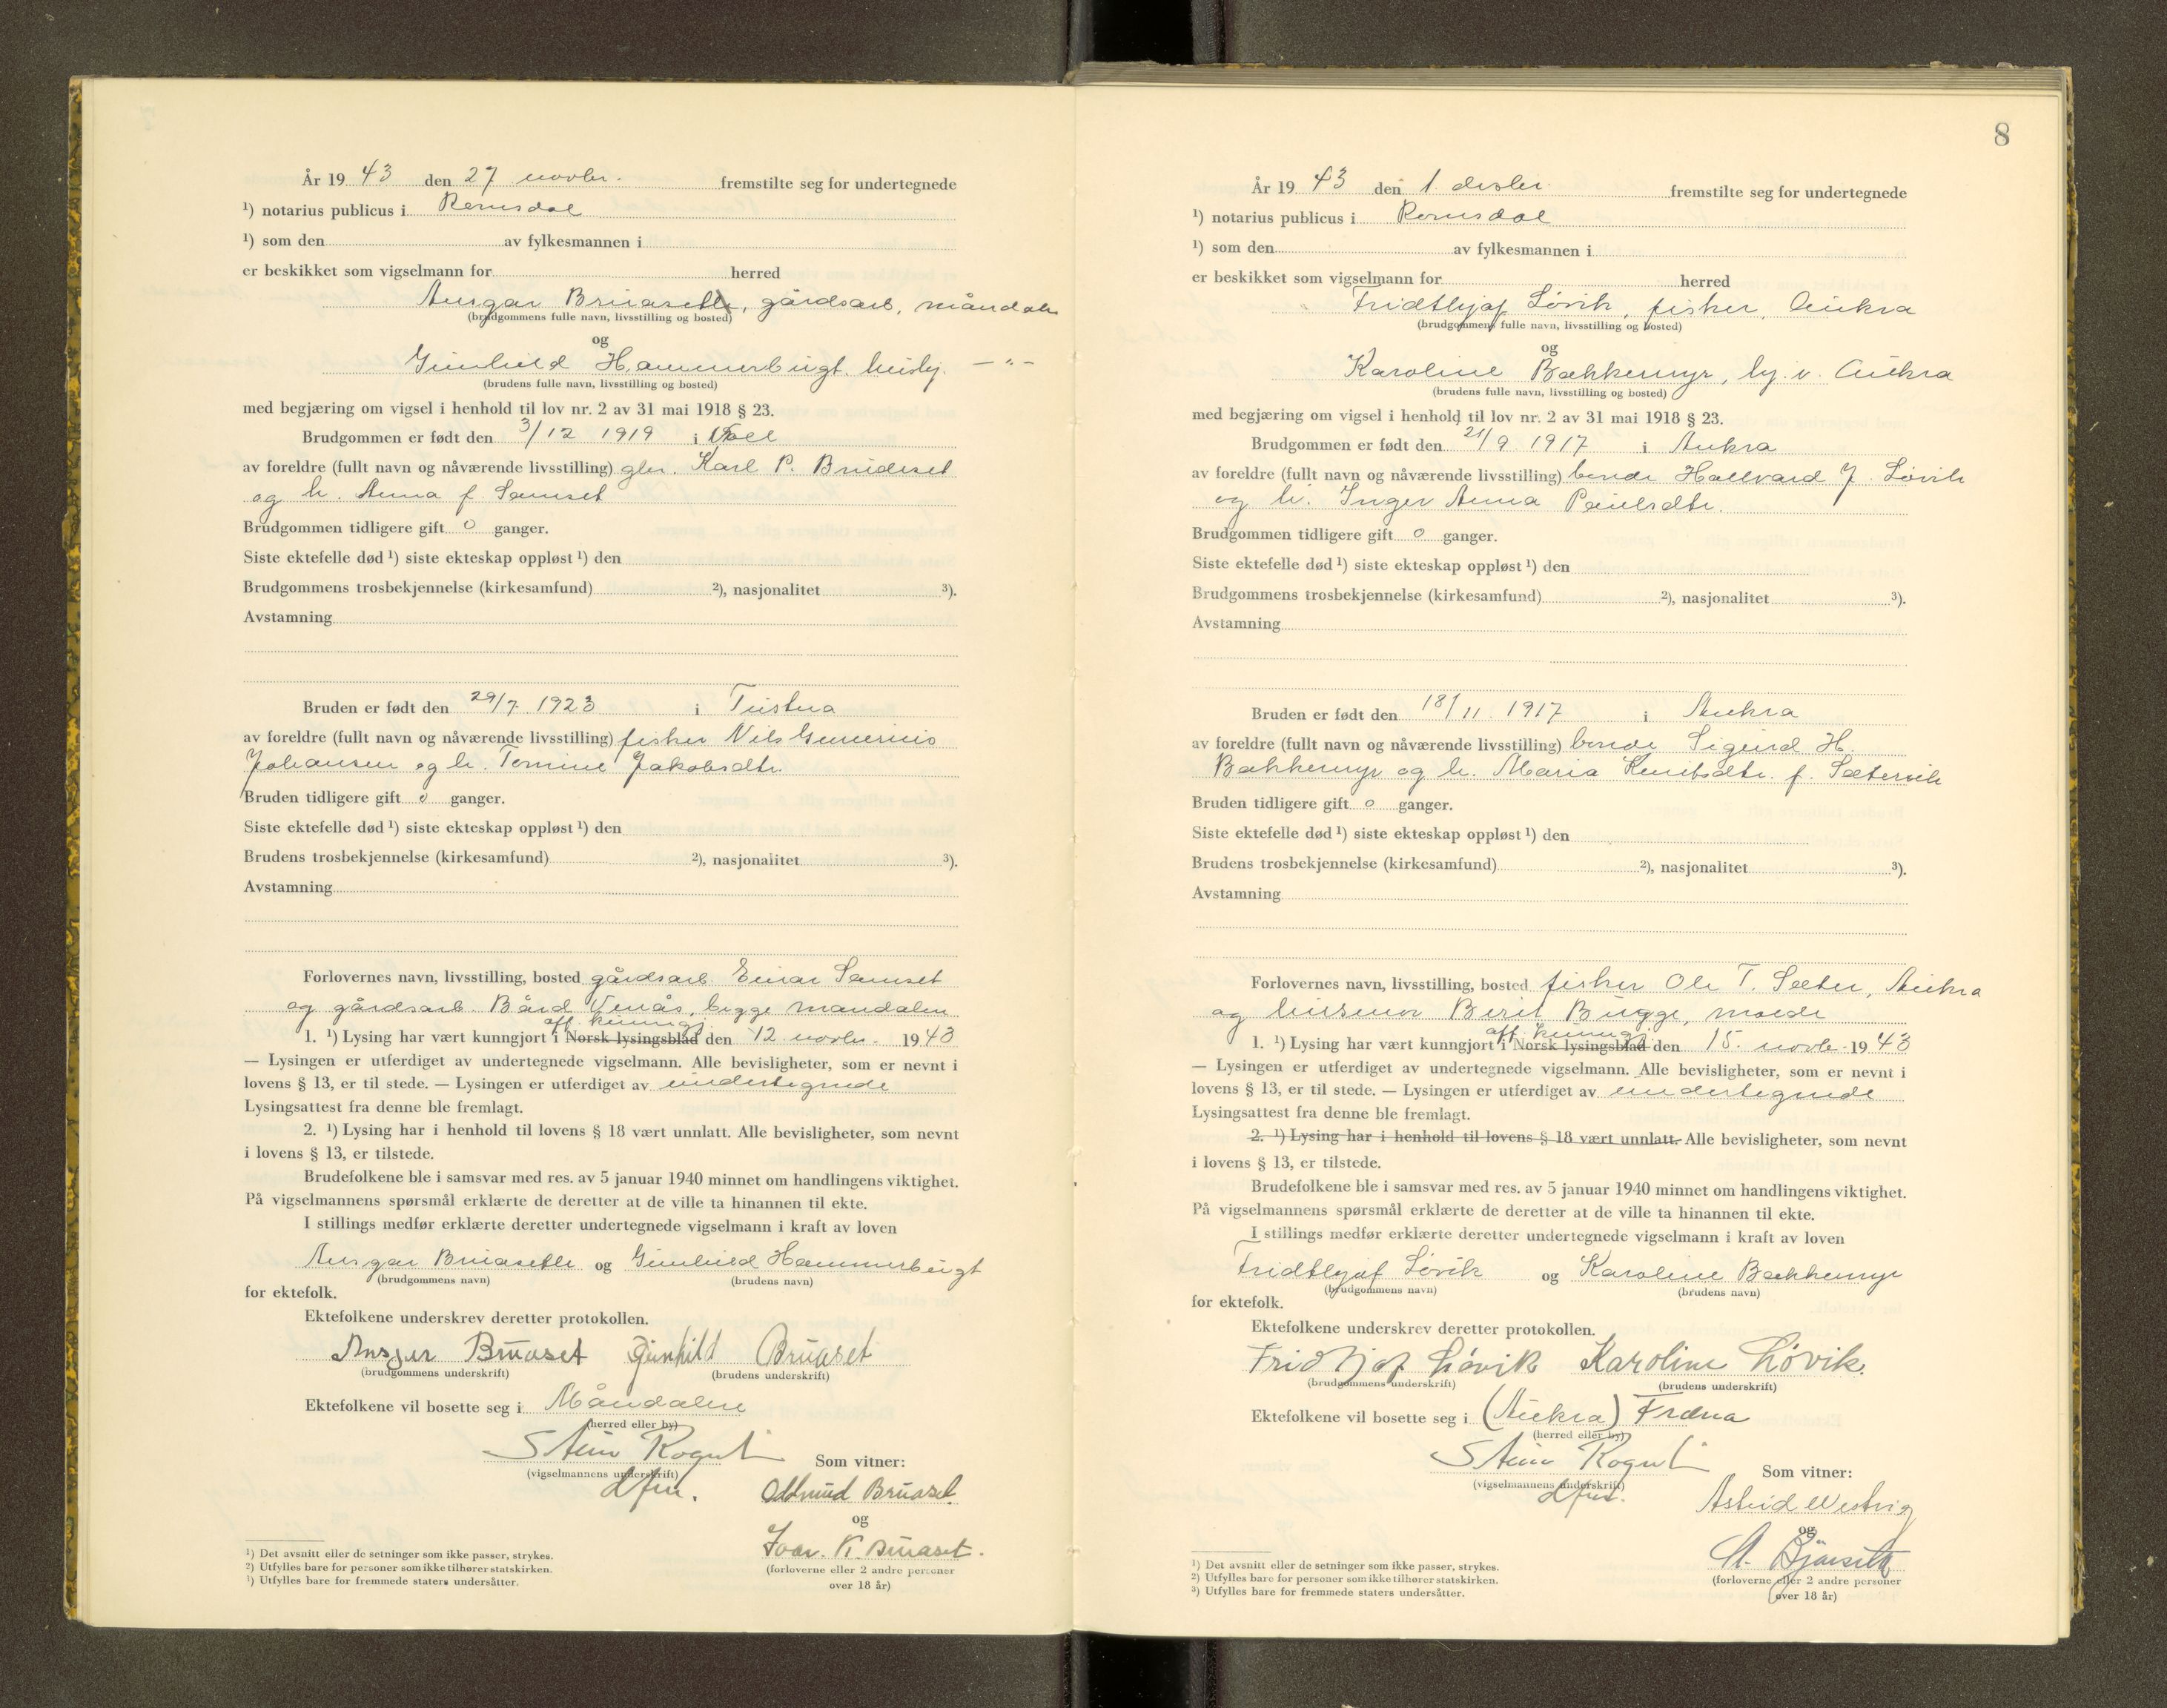 År 19 43 den 27 novbr. fremstilte seg for undertegnede
¹) notarius publicus i Romsdal
¹) som den av fylkesmannen i
er beskikket som vigselmann for herred
Ansgar Bruaseth, gårdsarb, måndalen
(brudgommens fulle navn, livsstilling og bosted)
og
Gunhild Hammerbugt. husbj. — " —
(brudens fulle navn, livsstilling og bosted)
med begjæring om vigsel i henhold til lov nr. 2 av 31 mai 1918 § 23.
Brudgommen er født den 3/12 1919 i Voll
av foreldre (fullt navn og nåværende livsstilling) gbr. Karl P. Brudeset
og h. Anna f. Samset
Brudgommen tidligere gift 0 ganger.
Siste ektefelle død ¹) siste ekteskap oppløst ¹) den
Brudgommens trosbekjennelse (kirkesamfund) ²), nasjonalitet ³).
Avstamning
Bruden er født den 29/7 1923 i Tustna
av foreldre (fullt navn og nåværende livsstilling) fisker Nils
Johansen og h. Tomine Jakobsdtr.
Bruden tidligere gift 0 ganger.
Siste ektefelle død ¹) siste ekteskap oppløst ¹) den
Brudens trosbekjennelse (kirkesamfund) ²), nasjonalitet ³).
Avstamning
Forlovernes navn, livsstilling, bosted gårdsarb Einar Samset
og gårdsarb. Bård Venås, begge mandalen
off. kunngj.
1. ¹) Lysing har vært kunngjort i Norsk lysingsblad den 12 novbr. 19 43
— Lysingen er utferdiget av undertegnede vigselmann. Alle bevisligheter, som er nevnt i
lovens § 13, er til stede. — Lysingen er utferdiget av undertegnede
Lysingsattest fra denne ble fremlagt.
2. ¹) Lysing har i henhold til lovens § 18 vært unnlatt. Alle bevisligheter, som nevnt
i lovens § 13, er tilstede.
Brudefolkene ble i samsvar med res. av 5 januar 1940 minnet om handlingens viktighet.
På vigselmannens spørsmål erklærte de deretter at de ville ta hinannen til ekte.
I stillings medfør erklærte deretter undertegnede vigselmann i kraft av loven
Ansgar Bruaseth og Gunhild Hammerbugt
(brudgommens navn) (brudens navn)
for ektefolk.
Ektefolkene underskrev deretter protokollen.
Ansgar Bruaset Gunhild Bruaset
(brudgommens underskrift) (brudens underskrift)
Ektefolkene vil bosette seg i Måndalen
(herred eller by)
Stein Rognli
(vigselmannens underskrift)
dfm.
Som vitner:
Oddmund Bruaset.
og
Ivar. K. Bruaset.
(forloverne eller 2 andre personer
over 18 år)
¹) Det avsnitt eller de setninger som ikke passer, strykes.
²) Utfylles bare for personer som ikke tilhører statskirken.
³) Utfylles bare for fremmede staters undersåtter.
8
År 19 43 den 1. desbr. fremstilte seg for undertegnede
¹) notarius publicus i Romsdal
¹) som den av fylkesmannen i
er beskikket som vigselmann for herred
Fridthjof Løvik, fisker, Aukra
(brudgommens fulle navn, livsstilling og bosted)
og
Karoline Bakkemyr, hj. v. Aukra
(brudens fulle navn, livsstilling og bosted)
med begjæring om vigsel i henhold til lov nr. 2 av 31 mai 1918 § 23.
Brudgommen er født den 21/9 1917 i Aukra
av foreldre (fullt navn og nåværende livsstilling) bonde Hallvard J. Løvik
og h. Inger Anna Paulsdtr.
Brudgommen tidligere gift 0 ganger.
Siste ektefelle død ¹) siste ekteskap oppløst ¹) den
Brudgommens trosbekjennelse (kirkesamfund) ²), nasjonalitet ³).
Avstamning
Bruden er født den 18/11. 1917 i Aukra
av foreldre (fullt navn og nåværende livsstilling) bonde Sigurd H.
Bakkemyr og h. Maria Knutsdtr. f. Sætervik
Bruden tidligere gift 0 ganger.
Siste ektefelle død ¹) siste ekteskap oppløst ¹) den
Brudens trosbekjennelse (kirkesamfund) ²), nasjonalitet ³).
Avstamning
Forlovernes navn, livsstilling, bosted fisker Ole T. Sæter, Aukra
og husmor Berit Bugge, molde
off. kunngj.
1. ¹) Lysing har vært kunngjort i Norsk lysingsblad den 15. novbr. 19 43
— Lysingen er utferdiget av undertegnede vigselmann. Alle bevisligheter, som er nevnt i
lovens § 13, er til stede. — Lysingen er utferdiget av undertegnede
Lysingsattest fra denne ble fremlagt.
2. ¹) Lysing har i henhold til lovens § 18 vært unnlatt. Alle bevisligheter, som nevnt
i lovens § 13, er tilstede.
Brudefolkene ble i samsvar med res. av 5 januar 1940 minnet om handlingens viktighet.
På vigselmannens spørsmål erklærte de deretter at de ville ta hinannen til ekte.
I stillings medfør erklærte deretter undertegnede vigselmann i kraft av loven
Fridthjof Løvik og Karoline Bakkemyr
(brudgommens navn) (brudens navn)
for ektefolk.
Ektefolkene underskrev deretter protokollen.
Fridtjof Løvik Karoline Løvik.
(brudgommens underskrift) (brudens underskrift)
Ektefolkene vil bosette seg i (Aukra) Fræna
(herred eller by)
Stein Rognli
(vigselmannens underskrift)
dfm.
Som vitner:
Astrid Westvig
og
(forloverne eller 2 andre personer
over 18 år)
¹) Det avsnitt eller de setninger som ikke passer, strykes.
²) Utfylles bare for personer som ikke tilhører statskirken.
³) Utfylles bare for fremmede staters undersåtter.